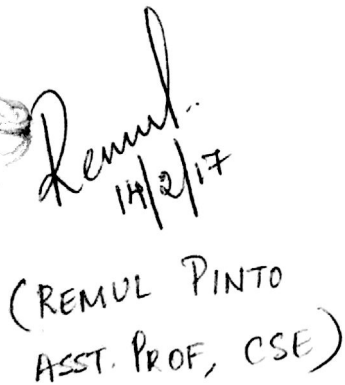 Remul.
14/2/17
(REMUL PINTO
ASST. PROF, CSE)